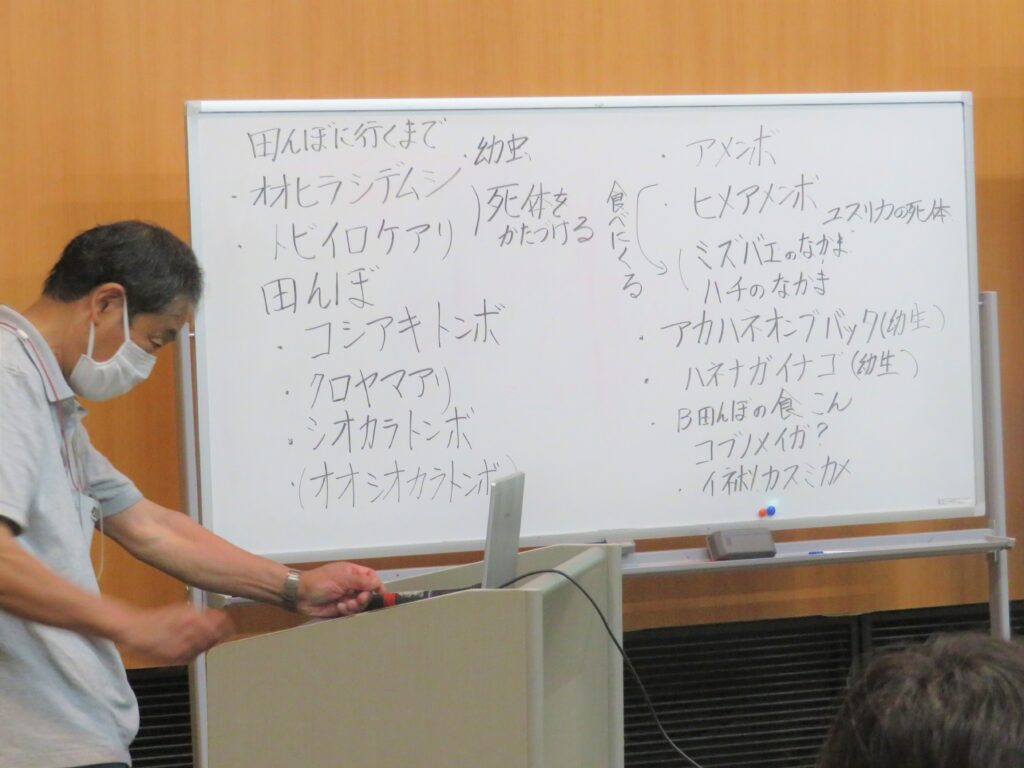 田んぼに行くまで
・オオヒラシデムシ ・幼虫
・トビイロケアリ
死体を
かたづける
田んぼ
・コシアキトンボ
・クロヤマアリ
・シオカラトンボ
・(オオシオカラトンボ)
・アメンボ
・ヒメアメンボ
ユスリカの死体
食べにくる
ミズバエのなかま
ハチのなかま
・アカハネオンブバック(幼生)
・ハネナガイナゴ(幼生)
・B田んぼの食こん
コブノメイガ?
・イネホソカスミカメ